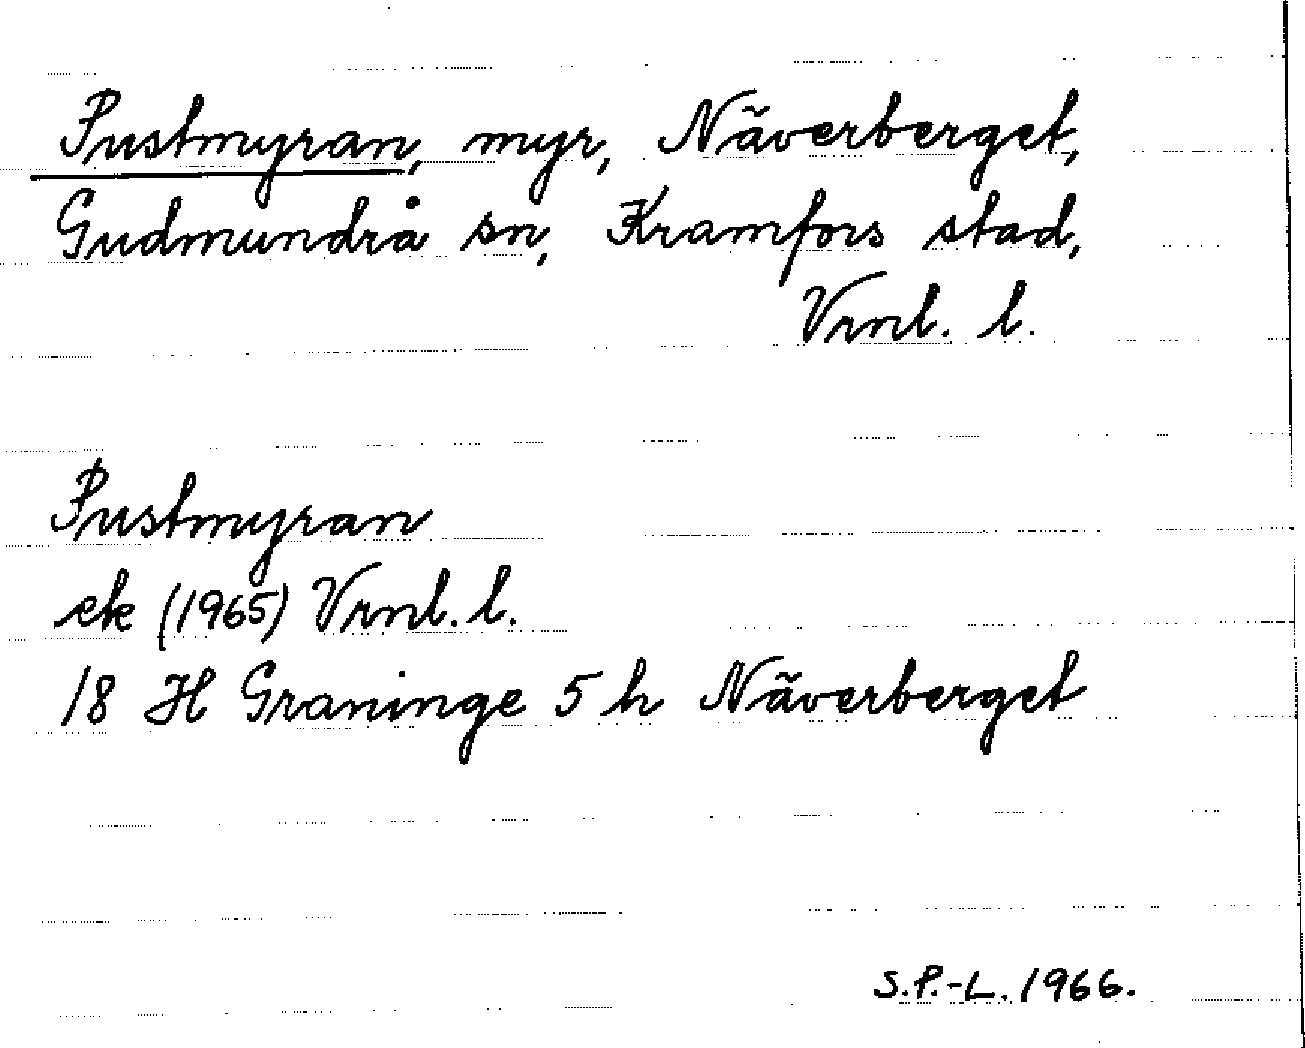 Pustmyran, myr, Näverberget,
Gudmundrå sn, Kramfors stad,
Vrnl. l.
Pustmyran
ek (1965) Vrnl. l.
18 H Graninge 5 h Näverberget
S.P.-L. 1966.